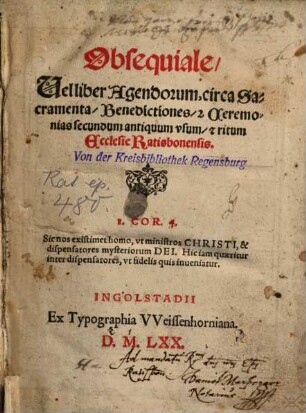 Obsequiale/
Vel liber Agendorum, circa Sa-
cramenta/ Benedictiones/ ⁊ Ceremo-
nias secundum antiquum vsum/ ⁊ ritum
Ecclesie Ratisbonensis.
Von der Kreisbibliothek Regensburg
Rat. ep.
480
1. COR. 4.
Sic nos existimet homo, vt ministros CHRISTI, &
dispensatores mysteriorum DEI. Hic iam quæritur
inter dispensatores, vt fidelis quis inueniatur.
INGOLSTADII
Ex Typographia VVeissenhorniana.
D. M. LXX.
Ad mandatū
Notarius